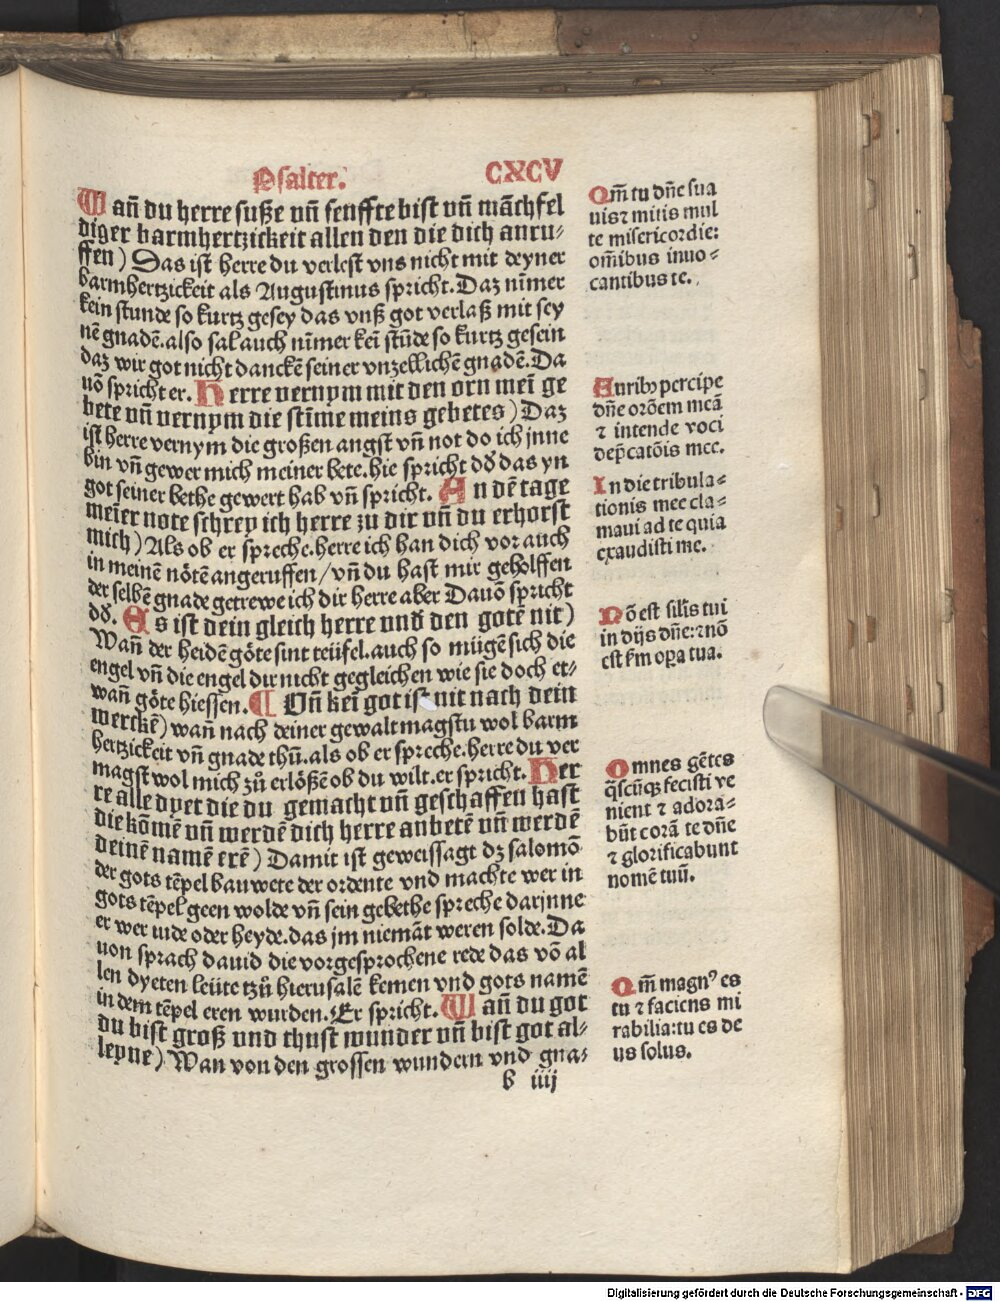 Psalter. CXCV
Wañ du herre suße vñ senffte bist vñ mãchfel
diger barmhertzickeit allen den die dich anru⸗
ffen) Das ist herre du verlest vns nicht mit deyner
barmhertzickeit als Augustinus spricht. Daz nĩmer
kein stunde so kurtz gesey das vnß got verlaß mit sey
nẽ gnadẽ. also sal auch nĩmer keĩ stũde so kurtz gesein
daz wir got nicht danckẽ seiner vnzellichẽ gnadẽ. Da
uõ spricht er. Herre vernym mit den orn meĩ ge
bete vñ vernym die stĩme meins gebetes) Daz
ist herre vernym die großen angst vñ not do ich jnne
bin vñ gewer mich meiner bete. hie spricht dð das yn
got seiner bethe gewert hab vñ spricht. An dẽ tage
meĩer note schrey ich herre zu dir vñ du erhorst
mich) Als ob er spreche. herre ich han dich vor auch
in meinẽ nötẽ angeruffen/ vñ du hast mir geholffen
der selbẽ gnade getrewe ich dir herre aber Dauõ spricht
dð. Es ist dein gleich herre vnd den gotẽ nit)
Wañ der heidẽ göte sint teüfel. auch so mügẽ sich die
engel vñ die engel dir nicht gegleichen wie sie doch et⸗
wañ göte hiessen. ¶ Vñ keĩ got ist nit nach dein
werckẽ) wañ nach deiner gewalt magstu wol barm
hertzickeit vñ gnade thũ. als ob er spreche. herre du ver
magst wol mich zů erlößẽ ob du wilt. er spricht. Her
re alle dyet die du gemacht vñ geschaffen hast
die kõmẽ vñ werdẽ dich herre anbetẽ vñ werdẽ
deinẽ namẽ erẽ) Damit ist geweissagt dz salomõ
der gots tẽpel bauwete der ordente vnd machte wer in
gots tẽpel geen wolde vñ sein gebethe spreche darjnne
er wer iude oder heyde. das jm niemãt weren solde. Da
uon sprach dauid die vorgesprochene rede das võ al
len dyeten leüte tzů hierusalẽ kemen vnd gots namẽ
in dem tẽpel eren wurden. Er spricht. Wañ du got
du bist groß vnd thust wunder vñ bist got al⸗
leyne) Wan von den grossen wundern vnd gna⸗
b iiij
Qm̃ tu dñe sua
uisꝛ mitis mul
te misericordie:
om̃ibus inuo⸗
cantibus te.
Auribꝰ percipe
dñe orõem meã
⁊ intende voci
dep̃catõis mee.
In die tribula⸗
tionis mee cla⸗
maui ad te quia
exaudisti me.
Nõ est silis tui
in dijs dñe: ⁊ nõ
est ẜm oꝑa tua.
Omnes gẽtes
q̃scũqꝫ fecisti ve
nient ⁊ adora⸗
bũt corã te dñe
⁊ glorificabunt
nomẽ tuũ.
Qm̃ magnꝰ es
tu ⁊ faciens mi
rabilia: tu es de
us solus.
Digitalisierung gefördert durch die Deutsche Forschungsgemeinschaft - DFG